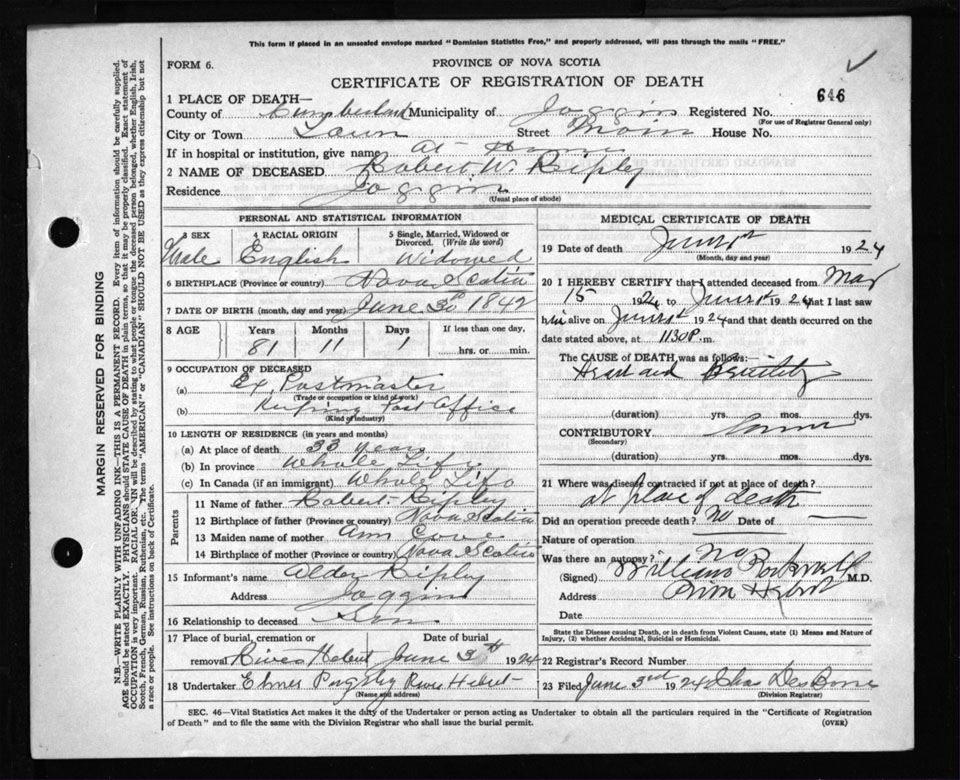 This form if placed in an unsealed envelope marked "Dominion Statistics Free," and properly addressed, will pass through the mails "FREE."
FORM 6.
PROVINCE OF NOVA SCOTIA
CERTIFICATE OF REGISTRATION OF DEATH
646
1 PLACE OF DEATH—
County of Cumberland Municipality of Joggins Registered No.
(For use of Registrar General only)
City or Town Town Street Main House No.
If in hospital or institution, give name At Home
2 NAME OF DECEASED Robert W. Ripley
Residence Joggins
(Usual place of abode)
PERSONAL AND STATISTICAL INFORMATION
3 SEX Male
4 RACIAL ORIGIN English
5 Single, Married, Widowed or Divorced. (Write the word) Widowed
6 BIRTHPLACE (Province or country) Nova Scotia
7 DATE OF BIRTH (month, day and year) June 30th 1842
8 AGE Years Months Days If less than one day,
81 11 1 hrs. or min.
9 OCCUPATION OF DECEASED
(a) Ex. Postmaster
(Trade or occupation or kind of work)
(b) Keeping Post Office
(Kind of industry)
10 LENGTH OF RESIDENCE (in years and months)
(a) At place of death 33 years
(b) In province Whole Life
(c) In Canada (if an immigrant) Whole Life
Parents
11 Name of father Robert Ripley
12 Birthplace of father (Province or country) Nova Scotia
13 Maiden name of mother Ann Cove
14 Birthplace of mother (Province or country) Nova Scotia
15 Informant's name Alder Ripley
Address Joggins
16 Relationship to deceased Son
17 Place of burial, cremation or Date of burial
removal River Hebert June 3th 1924
18 Undertaker Elmer Pugsley River Hebert
(Name and address)
MEDICAL CERTIFICATE OF DEATH
19 Date of death June 1st 1924
(Month, day and year)
20 I HEREBY CERTIFY that I attended deceased from Mar
15 1924 to June 1st 1924 that I last saw
him alive on June 1st 1924 and that death occurred on
date stated above, at 1130 P.m.
The CAUSE OF DEATH was as follows:
Heart and Senility
(duration) yrs. mos. dys.
CONTRIBUTORY
(Secondary)
(duration) yrs. mos. dys.
21 Where was disease contracted if not at place of death?
at place of death
Did an operation precede death? no Date of —
Nature of operation
Was there an autopsy? no
(Signed) William Rockwell M.D.
Address River Hebert
Date
State the Disease causing Death, or in death from Violent Causes, state (1) Means and Nature of
Injury, (2) whether Accidental, Suicidal or Homicidal.
22 Registrar's Record Number
23 Filed June 3rd 1924
(Division Registrar)
SEC. 46—Vital Statistics Act makes it the duty of the Undertaker or person acting as Undertaker to obtain all the particulars required in the "Certificate of Registration
of Death" and to file the same with the Division Registrar who shall issue the burial permit. (OVER)
MARGIN RESERVED FOR BINDING
N.B.—WRITE PLAINLY WITH UNFADING INK—THIS IS A PERMANENT RECORD. Every item of information should be carefully supplied.
AGE should be stated EXACTLY. PHYSICIANS should STATE CAUSE OF DEATH in plain terms, so that it may be properly classified. Exact statement of
OCCUPATION is very important. RACIAL ORIGIN will be described by stating to what people or tongue the deceased person belonged, whether English, Irish,
Scotch, French, German, Russian, Ruthenian, etc. The terms "AMERICAN" or "CANADIAN" SHOULD NOT BE USED as they express citizenship but not
a race or people. See instructions on back of Certificate.